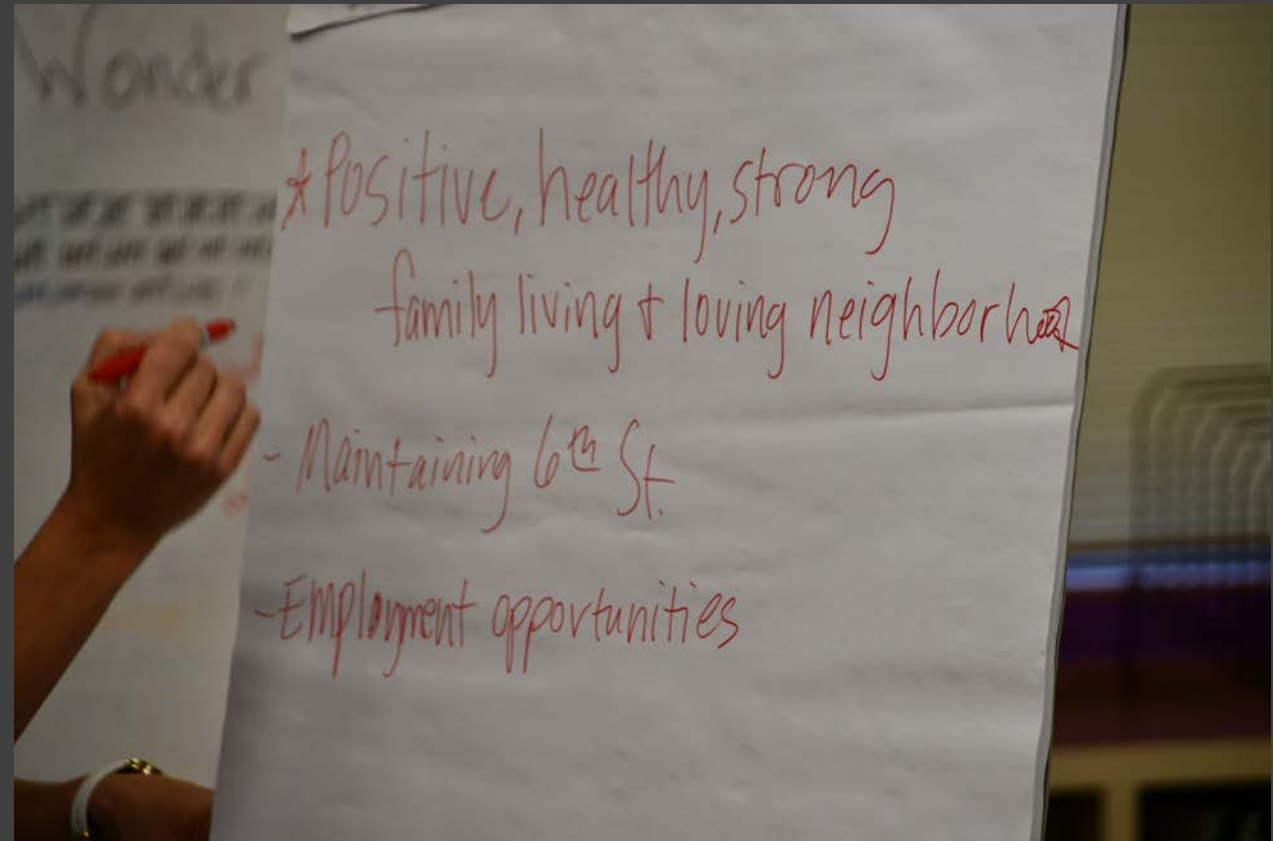 Wonder
* Positive, healthy, strong
family living + loving neighborhood
- Maintaining 6th St.
- Employment opportunities